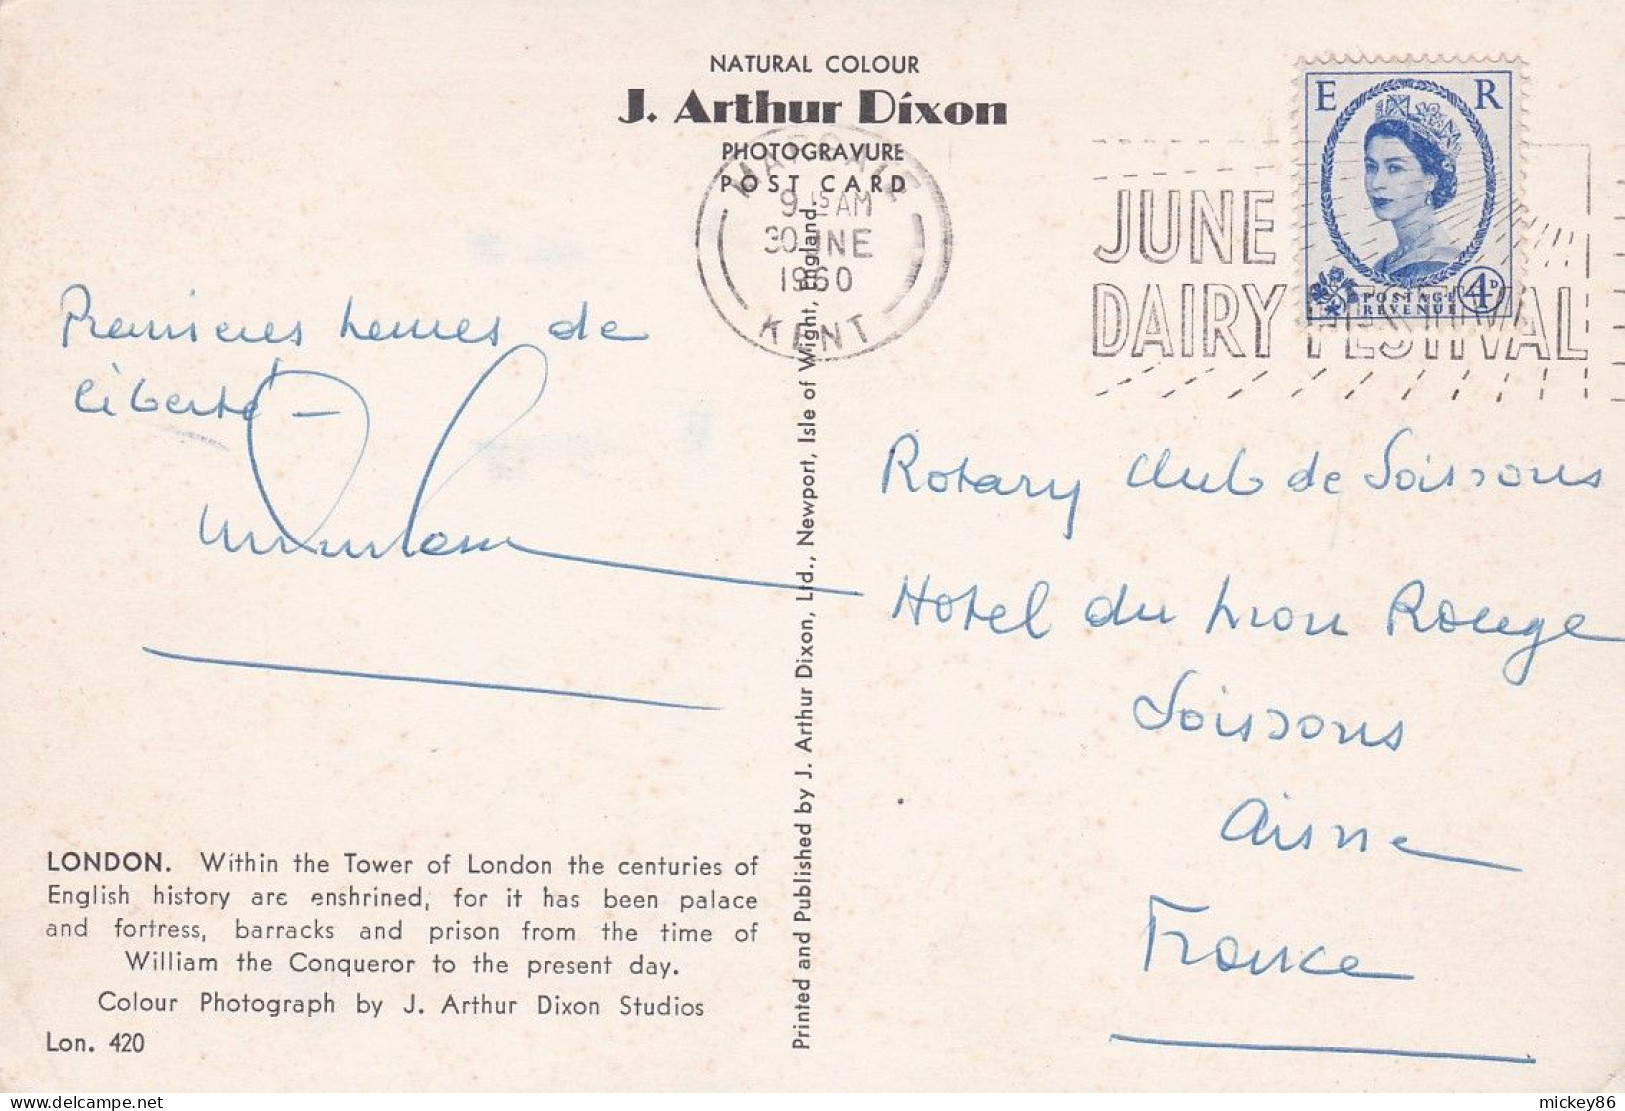 NATURAL COLOUR
J. Arthur Dixon
PHOTOGRAVURE
POST CARD
9 15 AM
30 JNE
1960
KENT
JUNE
DAIRY FESTIVAL
E R
POSTAGE
REVENUE
4D
Premières heures de
liberté —
Rotary Club de Soissons
Hotel du Lion Rouge
Soissons
Aisne
France
LONDON. Within the Tower of London the centuries of
English history are enshrined, for it has been palace
and fortress, barracks and prison from the time of
William the Conqueror to the present day.
Colour Photograph by J. Arthur Dixon Studios
Lon. 420
Printed and Published by J. Arthur Dixon, Ltd., Newport, Isle of Wight, England.
mickey86